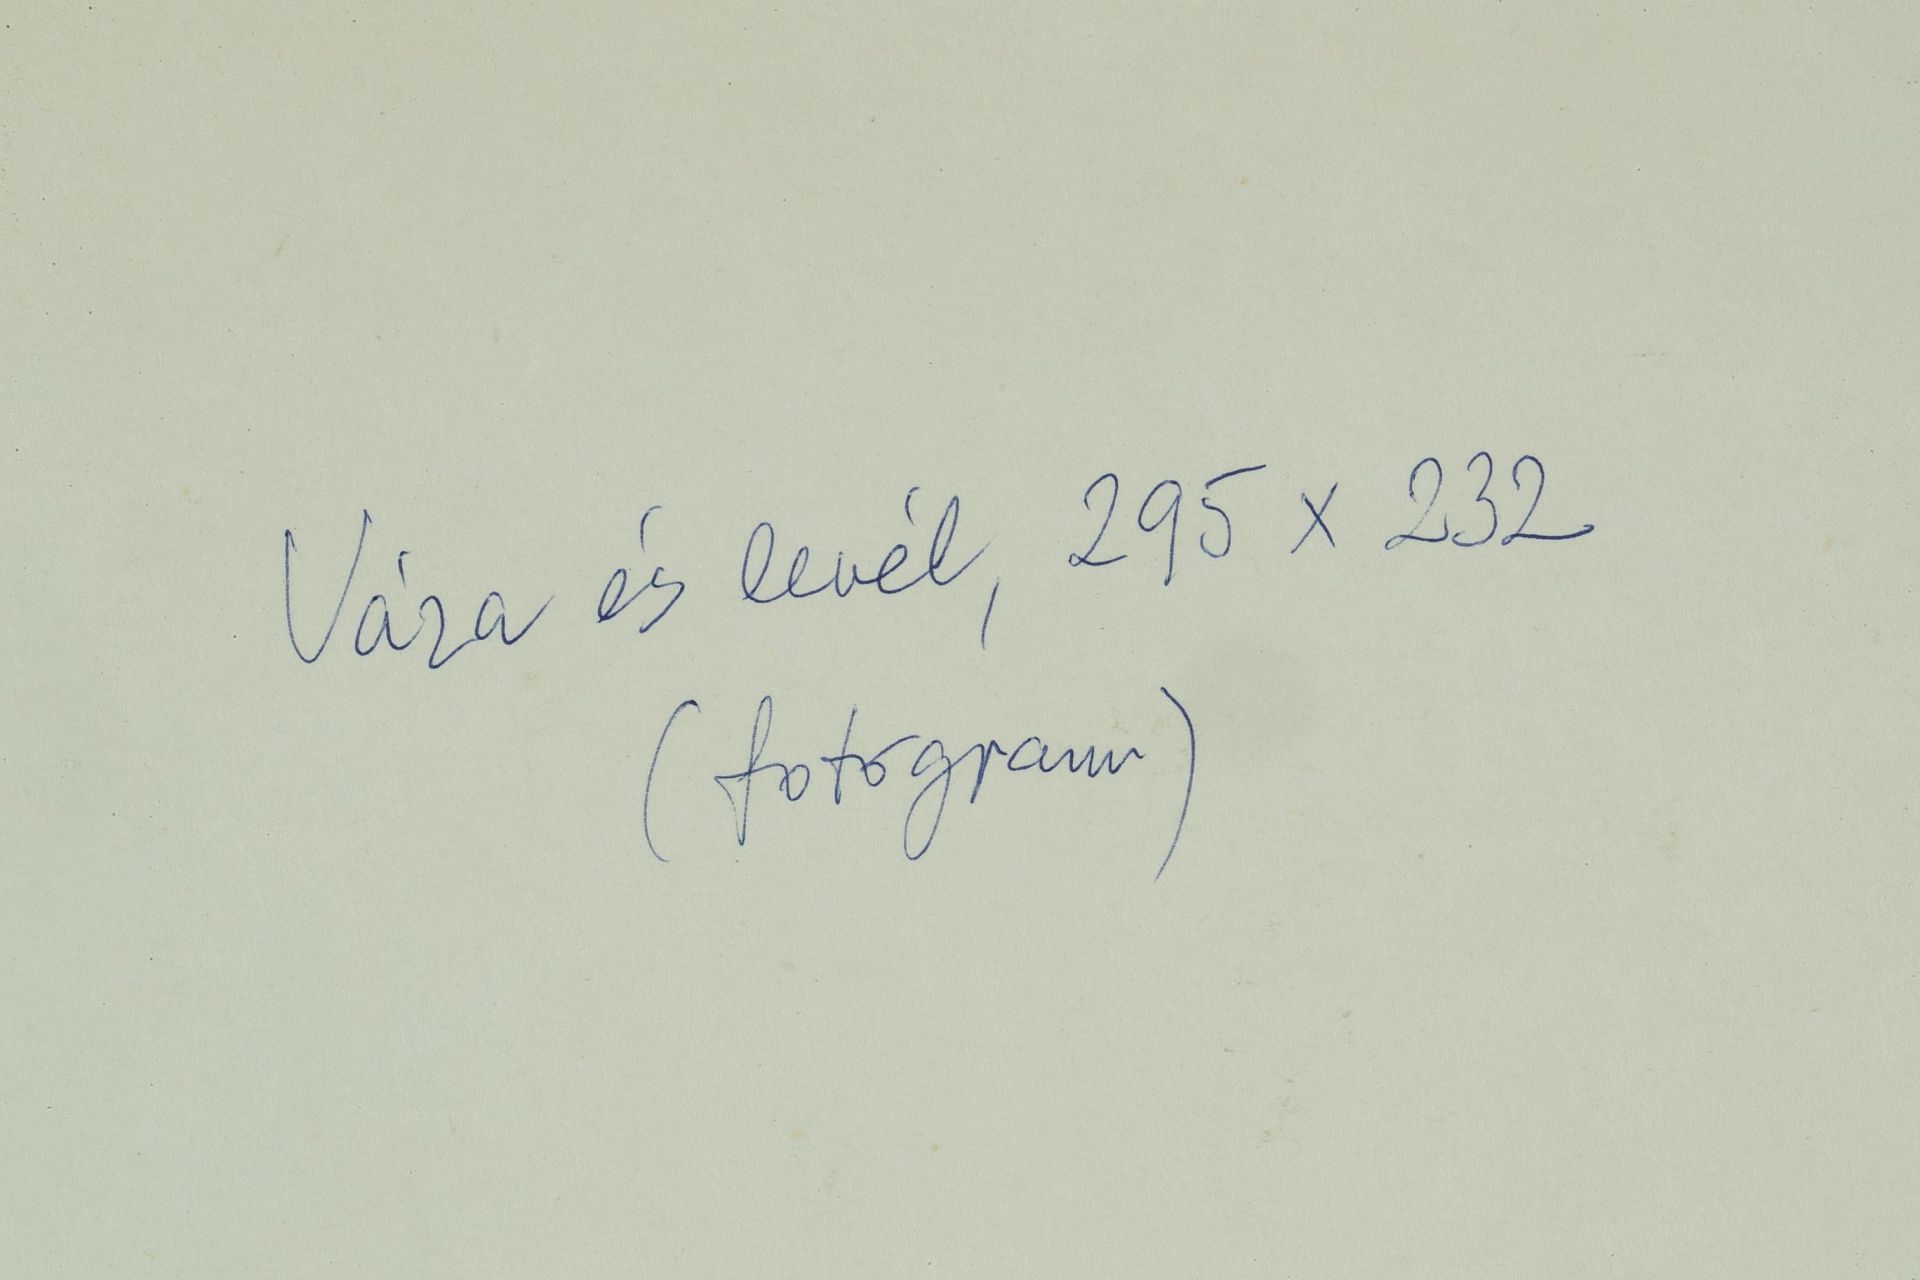 Váza és levél, 295 x 232
(fotogramm)